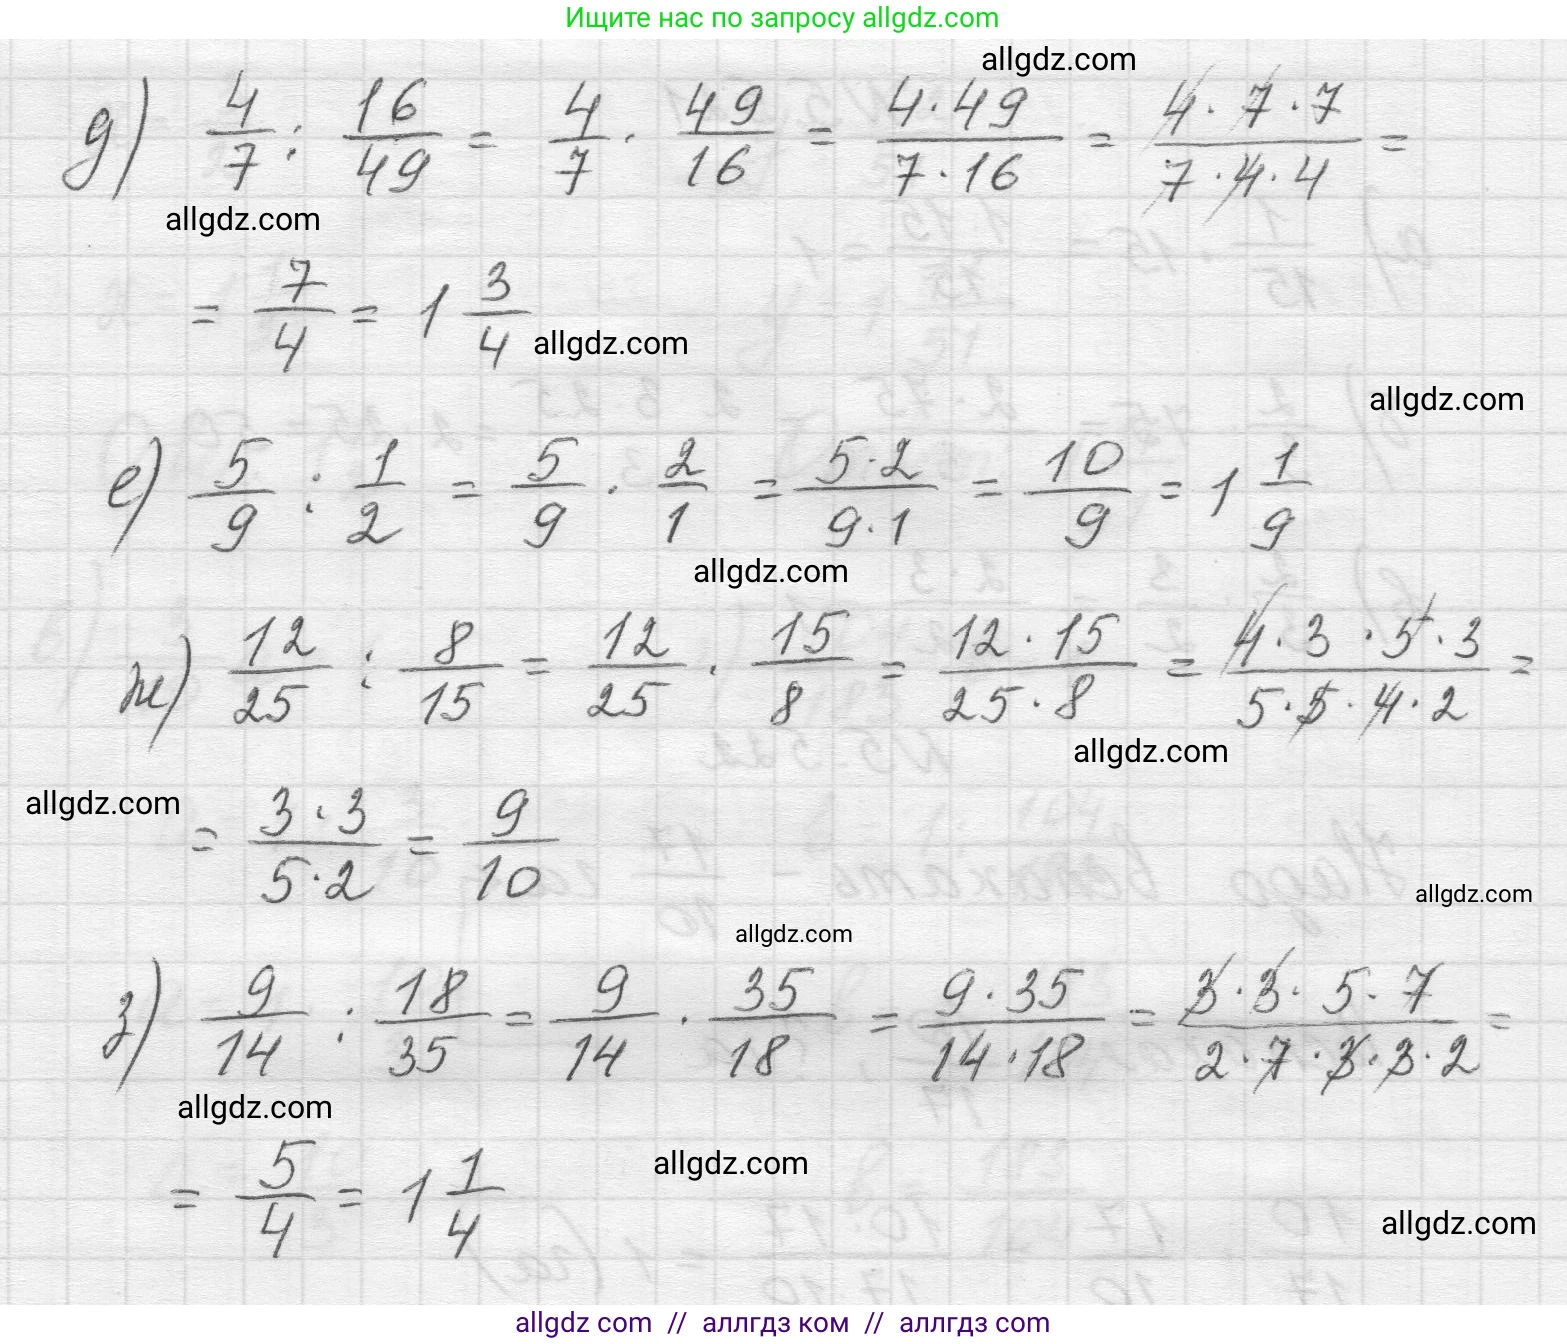 Ищите нас по запросу allgdz.com
allgdz.com
д) 4/7 : 16/49 = 4/7 · 49/16 = 4·49/7·16 = 4·7·7/7·4·4 =
allgdz.com
= 7/4 = 1 3/4
allgdz.com
allgdz.com
е) 5/9 : 1/2 = 5/9 · 2/1 = 5·2/9·1 = 10/9 = 1 1/9
allgdz.com
ж) 12/25 : 8/15 = 12/25 · 15/8 = 12·15/25·8 = 4·3·5·3/5·5·4·2 =
allgdz.com
allgdz.com
= 3·3/5·2 = 9/10
allgdz.com
allgdz.com
з) 9/14 : 18/35 = 9/14 · 35/18 = 9·35/14·18 = 3·3·5·7/2·7·3·3·2 =
allgdz.com
= 5/4 = 1 1/4
allgdz.com
allgdz.com
allgdz com // аллгдз ком // аллгдз com